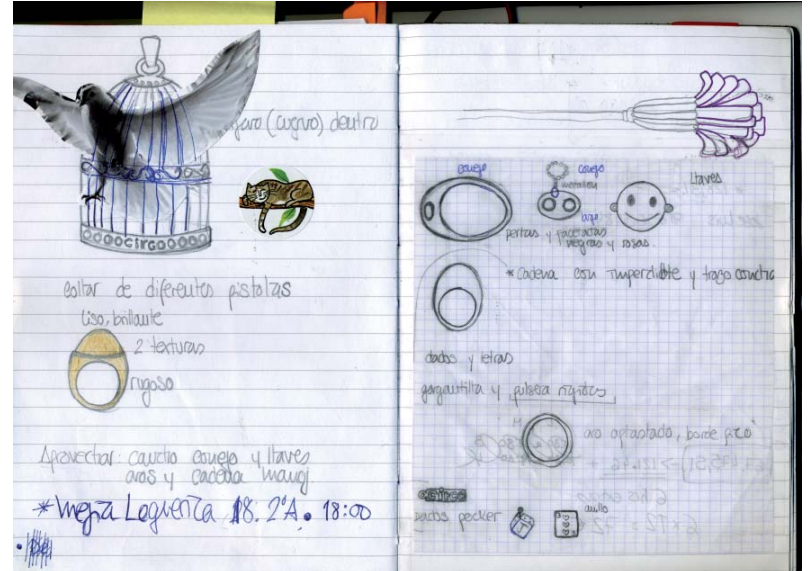 (cuervo) dentro
CIRCO
collar de diferentes pistolas
liso, brillante
2 texturas
rugoso
Aprovechar: caucho conejo y llaves
aros y cadena
*Mejía Lequerica 18. 2ºA. 18:00
conejo
conejo
llaves
perlas y facetadas
negras y rosas.
* Cadena con imperdible y trozo caucho
dados y letras
gargantilla y pulsera rígidas
aro aplastado, borde
CIRCO
dados pocker
anillo